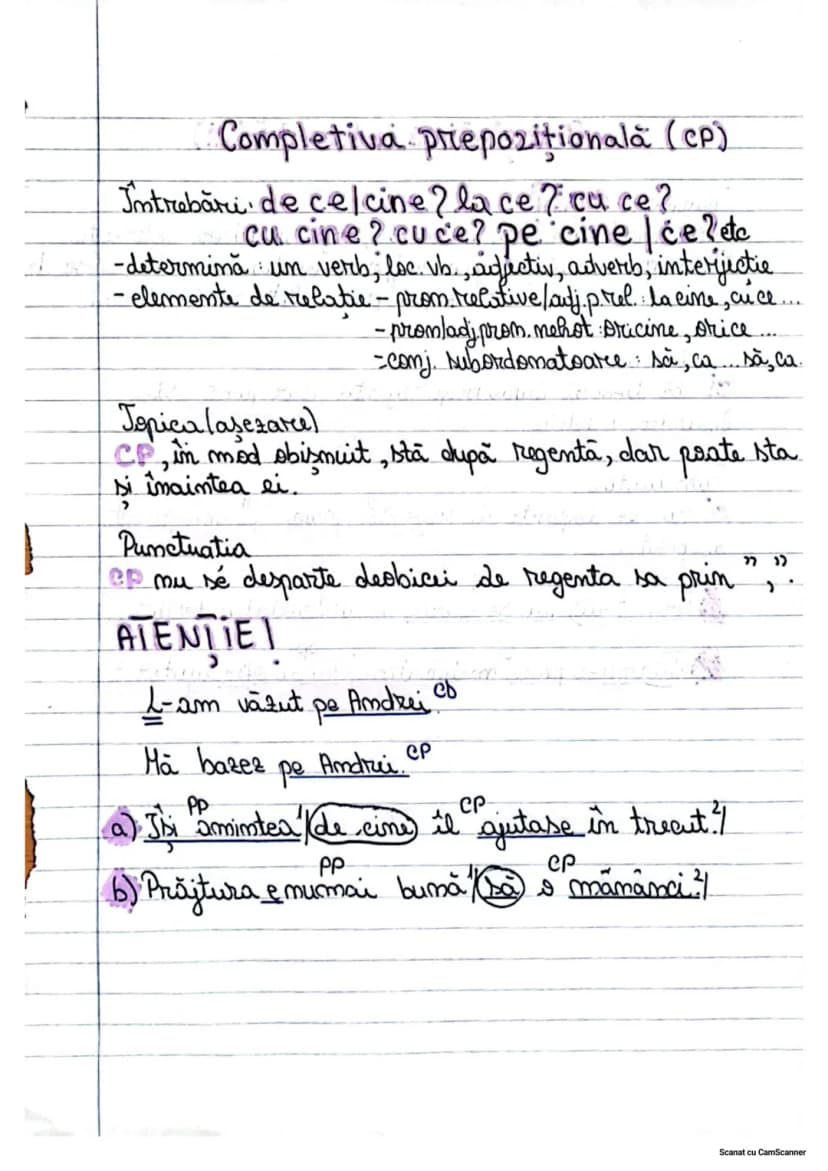 Completiva prepozițională (CP)
Întrebări: de ce/cine? la ce? cu ce?
cu cine? cu ce? pe cine / ce? etc
- determină: un verb, loc. vb., adjectiv, adverb, interjectie
- elemente de relatie - pron. relative/adj. p. rel.: la cine, cu ce ...
- pron/adj pron. nehot: oricine, orice ...
- conj. subordonatoare: să, ca ... să, ca.
Topica (așezare)
CP, în mod obișnuit, stă după regentă, dar poate sta
și înaintea ei.
Punctuatia
CP nu se desparte deobicei de regenta sa prin ",".
ATENȚIE!
L-am văzut pe Andrei. Cb
Mă bazez pe Andrei. CP
PP CP
a) Își amintea ¹/ de cine îl ajutase în trecut. ²/
PP CP
b) Prăjitura e numai bună ¹/ să o mănânci. ²/
Scanat cu CamScanner